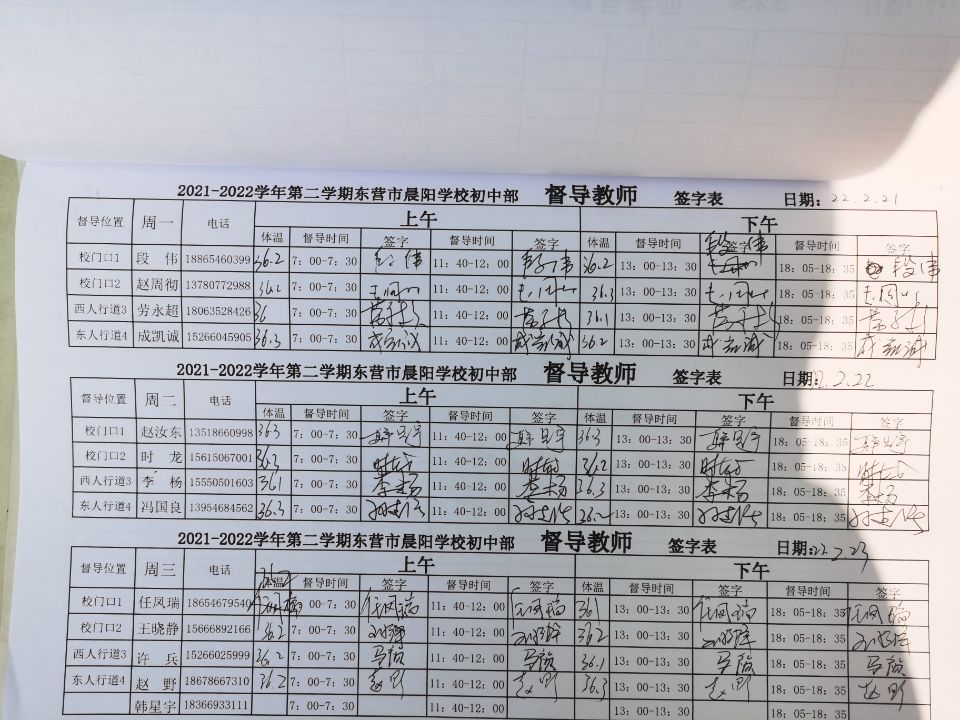 2021-2022学年第二学期东营市晨阳学校初中部 督导教师 签字表 日期：22.2.21
督导位置 周一 电话 上午 下午
体温 督导时间 签字 督导时间 签字 体温 督导时间 签字 督导时间 签字
校门口1 段 伟 18865460399 36.2 7：00-7：30 11：40-12：00 36.2 13：00-13：30 段伟 18：05-18：35 段伟
校门口2 赵周彻 13780772988 36.2 7：00-7：30 11：40-12：00 36.3 13：00-13：30 18：05-18：35
西人行道3 劳永超 18063528426 36 7：00-7：30 11：40-12：00 36.1 13：00-13：30 18：05-18：35
东人行道4 成凯诚 15266045905 36.3 7：00-7：30 成凯诚 11：40-12：00 成凯诚 36.2 13：00-13：30 成凯诚 18：05-18：35 成凯诚
2021-2022学年第二学期东营市晨阳学校初中部 督导教师 签字表 日期：2.22
督导位置 周二 电话 上午 下午
体温 督导时间 签字 督导时间 签字 体温 督导时间 签字 督导时间 签字
校门口1 赵汝东 13518660998 36.3 7：00-7：30 11：40-12：00 36.3 13：00-13：30 18：05-18：35
校门口2 时 龙 15615067001 36.3 7：00-7：30 时龙 11：40-12：00 时龙 36.2 13：00-13：30 时龙 18：05-18：35 时龙
西人行道3 李 杨 15550501603 36.1 7：00-7：30 李杨 11：40-12：00 李杨 36.3 13：00-13：30 李杨 18：05-18：35 李杨
东人行道4 冯国良 13954684562 36.3 7：00-7：30 11：40-12：00 36.2 13：00-13：30 18：05-18：35
2021-2022学年第二学期东营市晨阳学校初中部 督导教师 签字表 日期：22.2.23
督导位置 周三 电话 上午 下午
体温 督导时间 签字 督导时间 签字 体温 督导时间 签字 督导时间 签字
校门口1 任凤瑞 18654679540 36.2 7：00-7：30 任凤瑞 11：40-12：00 任凤瑞 36.1 13：00-13：30 任凤瑞 18：05-18：35 任凤瑞
校门口2 王晓静 15666892166 36.2 7：00-7：30 11：40-12：00 36.2 13：00-13：30 18：05-18：35
西人行道3 许 兵 15266025999 36.2 7：00-7：30 11：40-12：00 36.1 13：00-13：30 18：05-18：35
东人行道4 赵 野 18678667310 36.2 7：00-7：30 赵野 11：40-12：00 赵野 36.3 13：00-13：30 赵野 18：05-18：35 赵野
韩星宇 18366933111 7：00-7：30 11：40-12：00 13：00-13：30 18：05-18：35